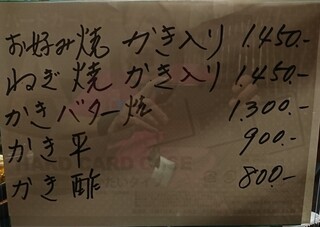 お好み焼 かき入り 1.450.-
ねぎ焼 かき入り 1.450.-
かきバター焼 1.300.-
かき平 900.-
かき酢 800.-
HARD CARD CASE